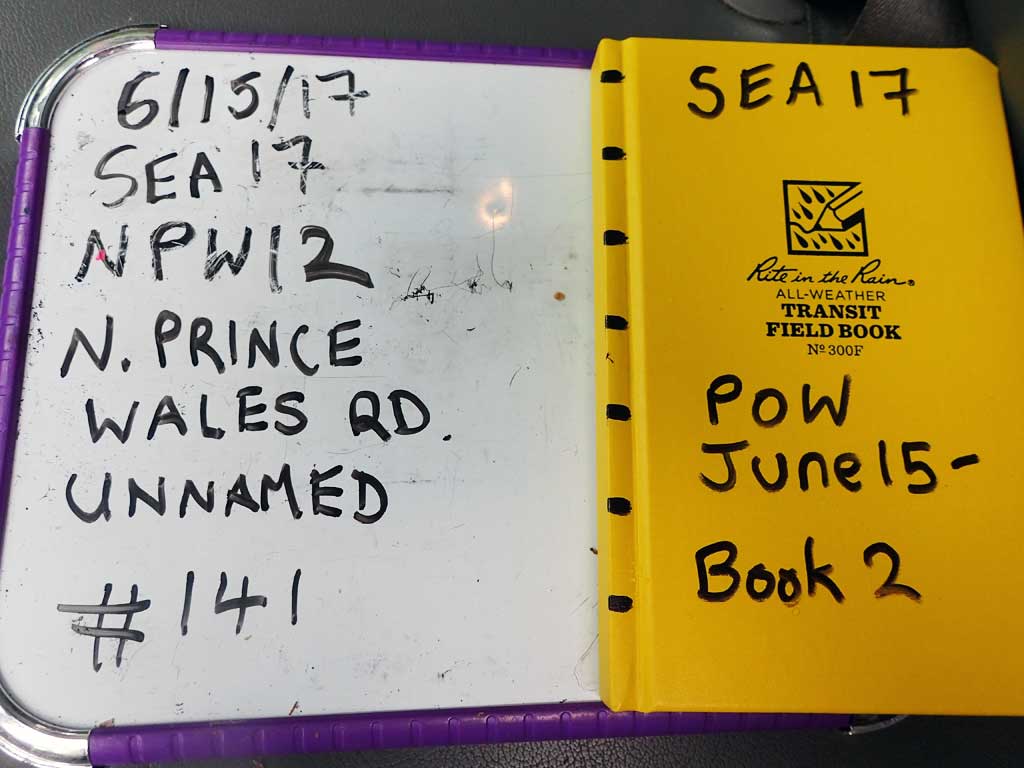 6/15/17
SEA 17
NPW12
N. PRINCE
WALES RD.
UNNAMED
# 141
SEA 17
Rite in the Rain®
ALL-WEATHER
TRANSIT
FIELD BOOK
Nº 300F
POW
June 15-
Book 2